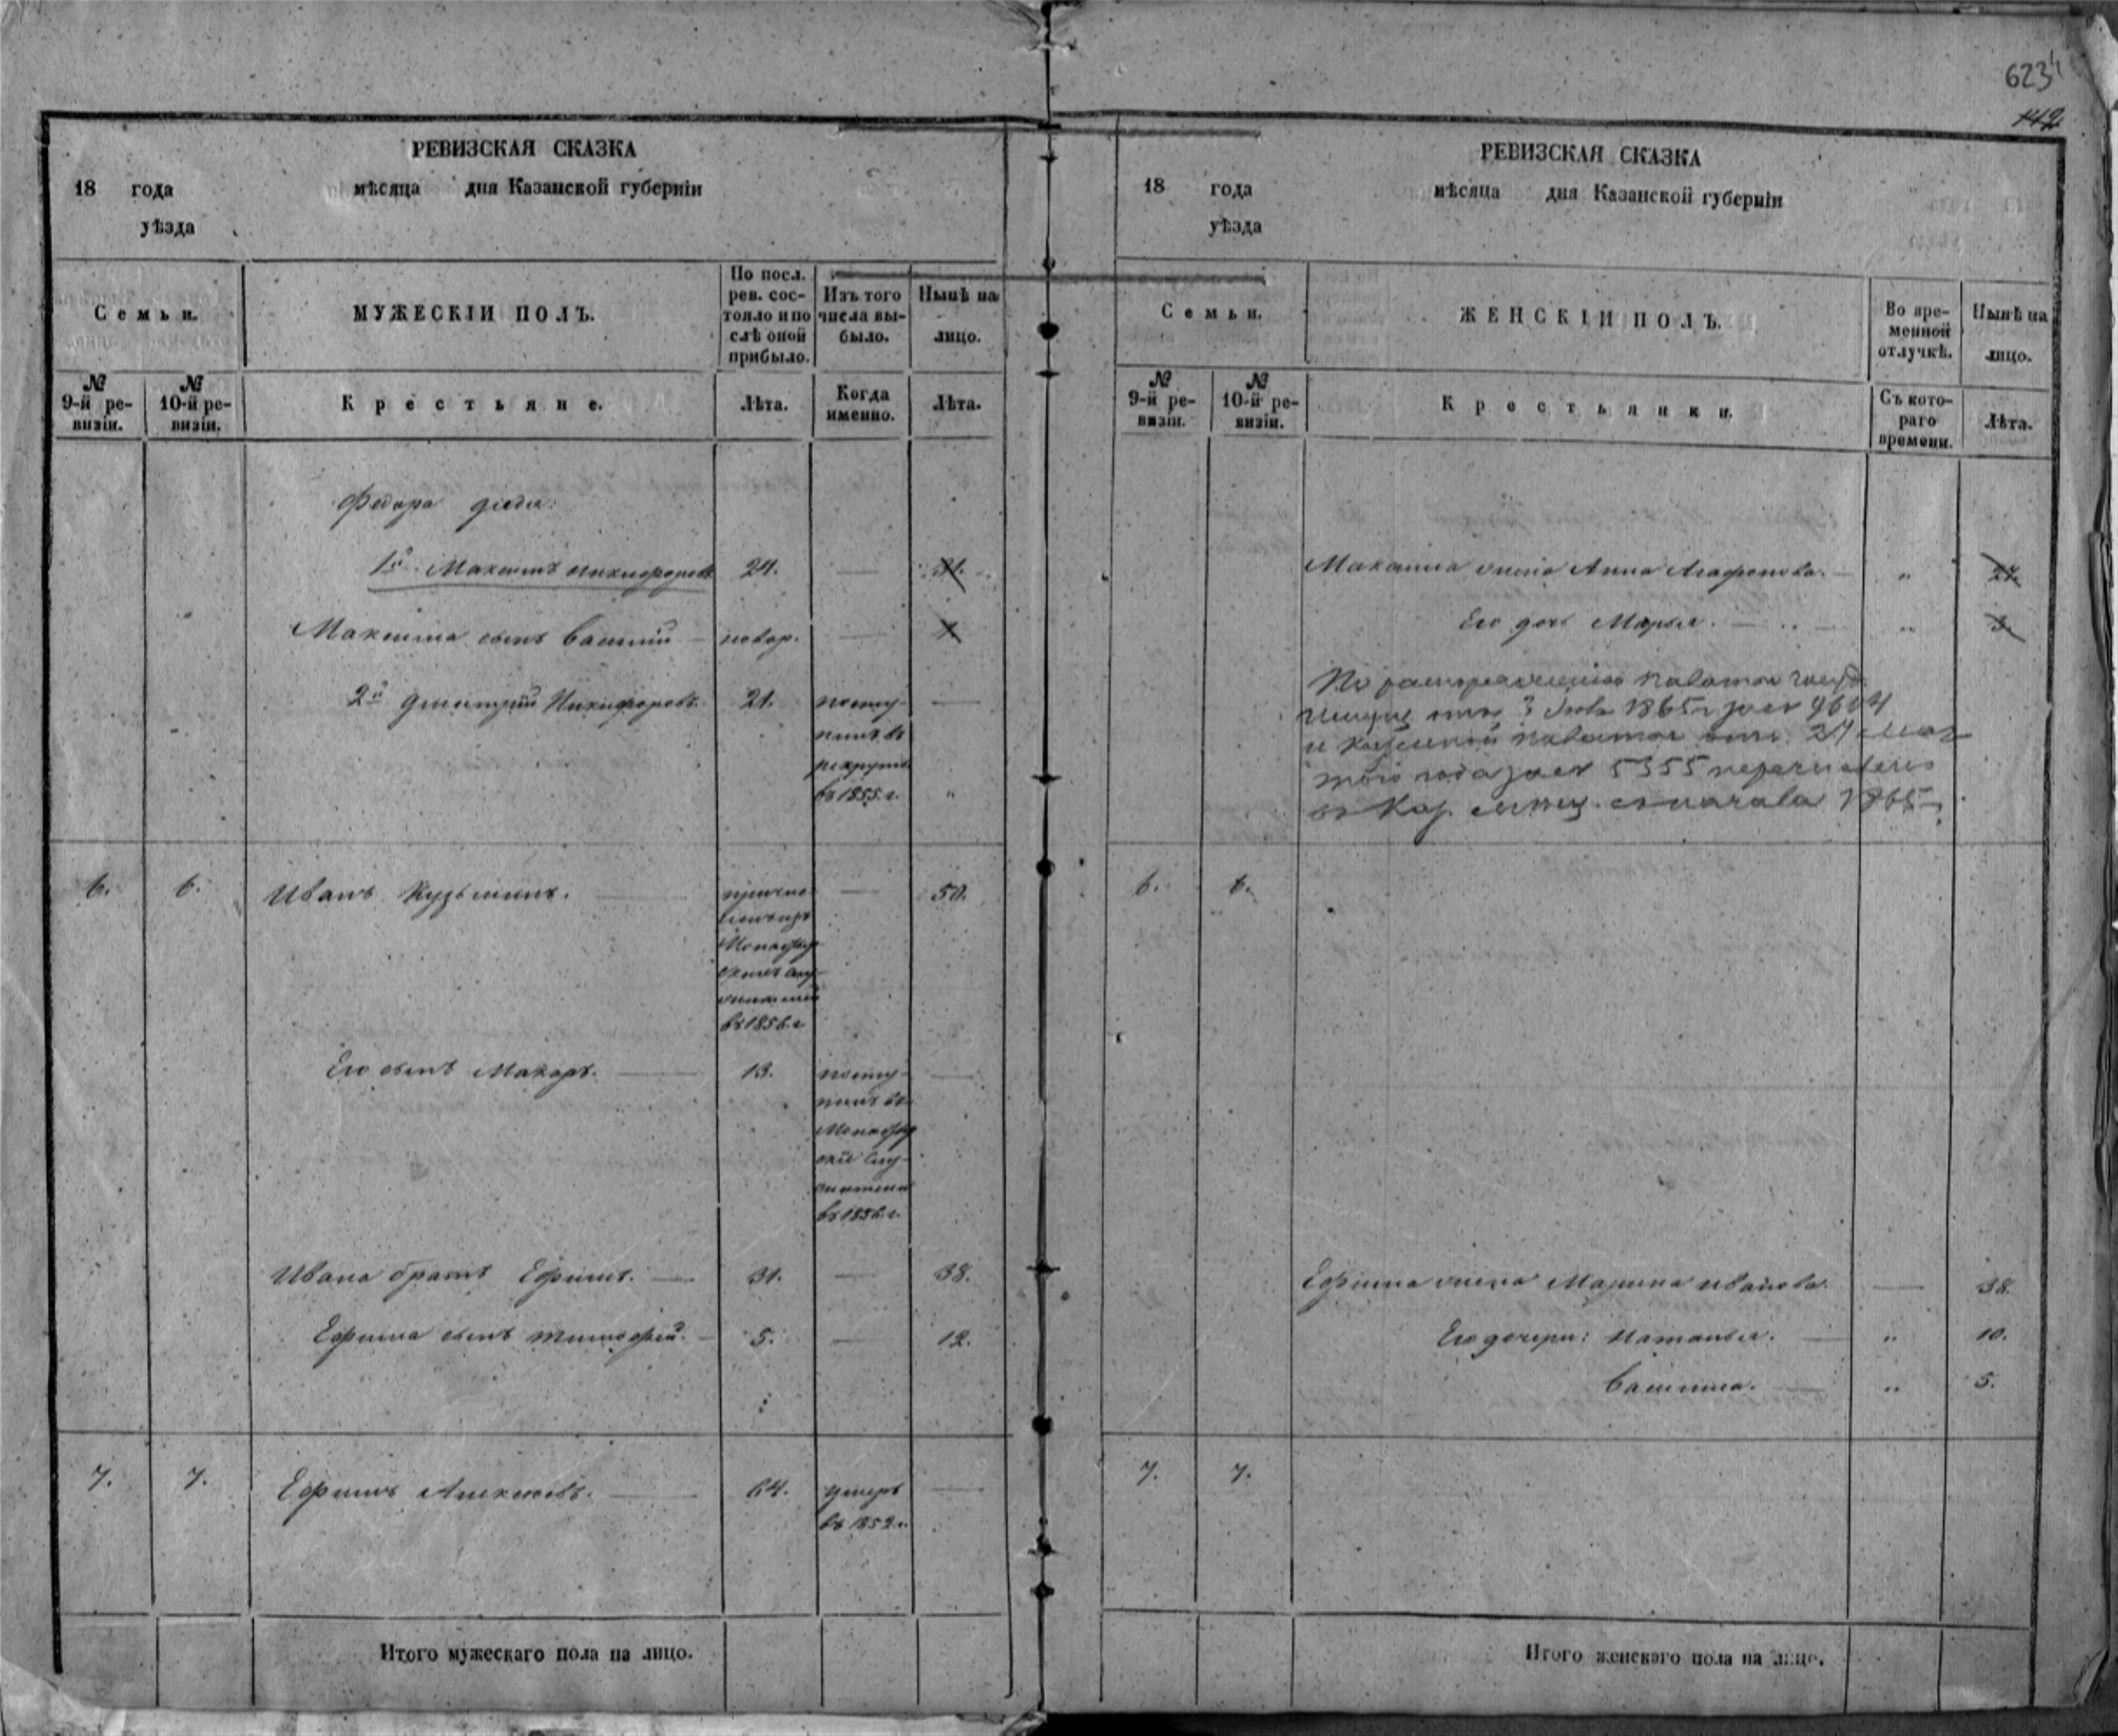 623
142
РЕВИЗСКАЯ СКАЗКА
18 года мѣсяца дня Казанской губерніи
уѣзда
Семьи.
МУЖЕСКІЙ ПОЛЪ.
По посл. рев. состояло и послѣ оной прибыло.
Изъ того числа выбыло.
Нынѣ на лицо.
№ 9-й ревизіи.
№ 10-й ревизіи.
Крестьяне.
Лѣта.
Когда именно.
Лѣта.
Федора
1й Максимъ Никифоровъ 24. —
Максима сынъ Василій — новор. —
2й Дмитрій Никифоровъ. 21. посту- —
пилъ въ
рекруты
въ 1855 г. "
6. 6. Иванъ Кузьминъ. — причис- — 50.
въ 1856 г.
Его сынъ Макаръ. — 13. посту- —
пилъ въ
въ 1856 г.
Ивана братъ Ефимъ. — 31. — 38.
Ефима сынъ Тимофей. — 5. — 12.
7. 7. Ефимъ Алексѣевъ. — 64. умеръ —
въ 1852 г.
Итого мужескаго пола на лицо.
РЕВИЗСКАЯ СКАЗКА
18 года мѣсяца дня Казанской губерніи
уѣзда
Семьи.
ЖЕНСКІЙ ПОЛЪ.
Во временной отлучкѣ.
Нынѣ на лицо.
№ 9-й ревизіи.
№ 10-й ревизіи.
Крестьянки.
Съ котораго времени.
Лѣта.
Максима жена Анна Агафонова. — " 24.
Его дочь Марья. — " 3.
По распоряженію палаты
3 1865 г за №
и казенной палаты отъ 24
того года за № 5355 перечислены
въ Каз. мѣщ. съ начала 1865 г.
6. 6.
Ефима жена Марина Иванова. — 38.
Его дочери: Наталья. — " 10.
Василиса. — " 5.
7. 7.
Итого женскаго пола на лицо.